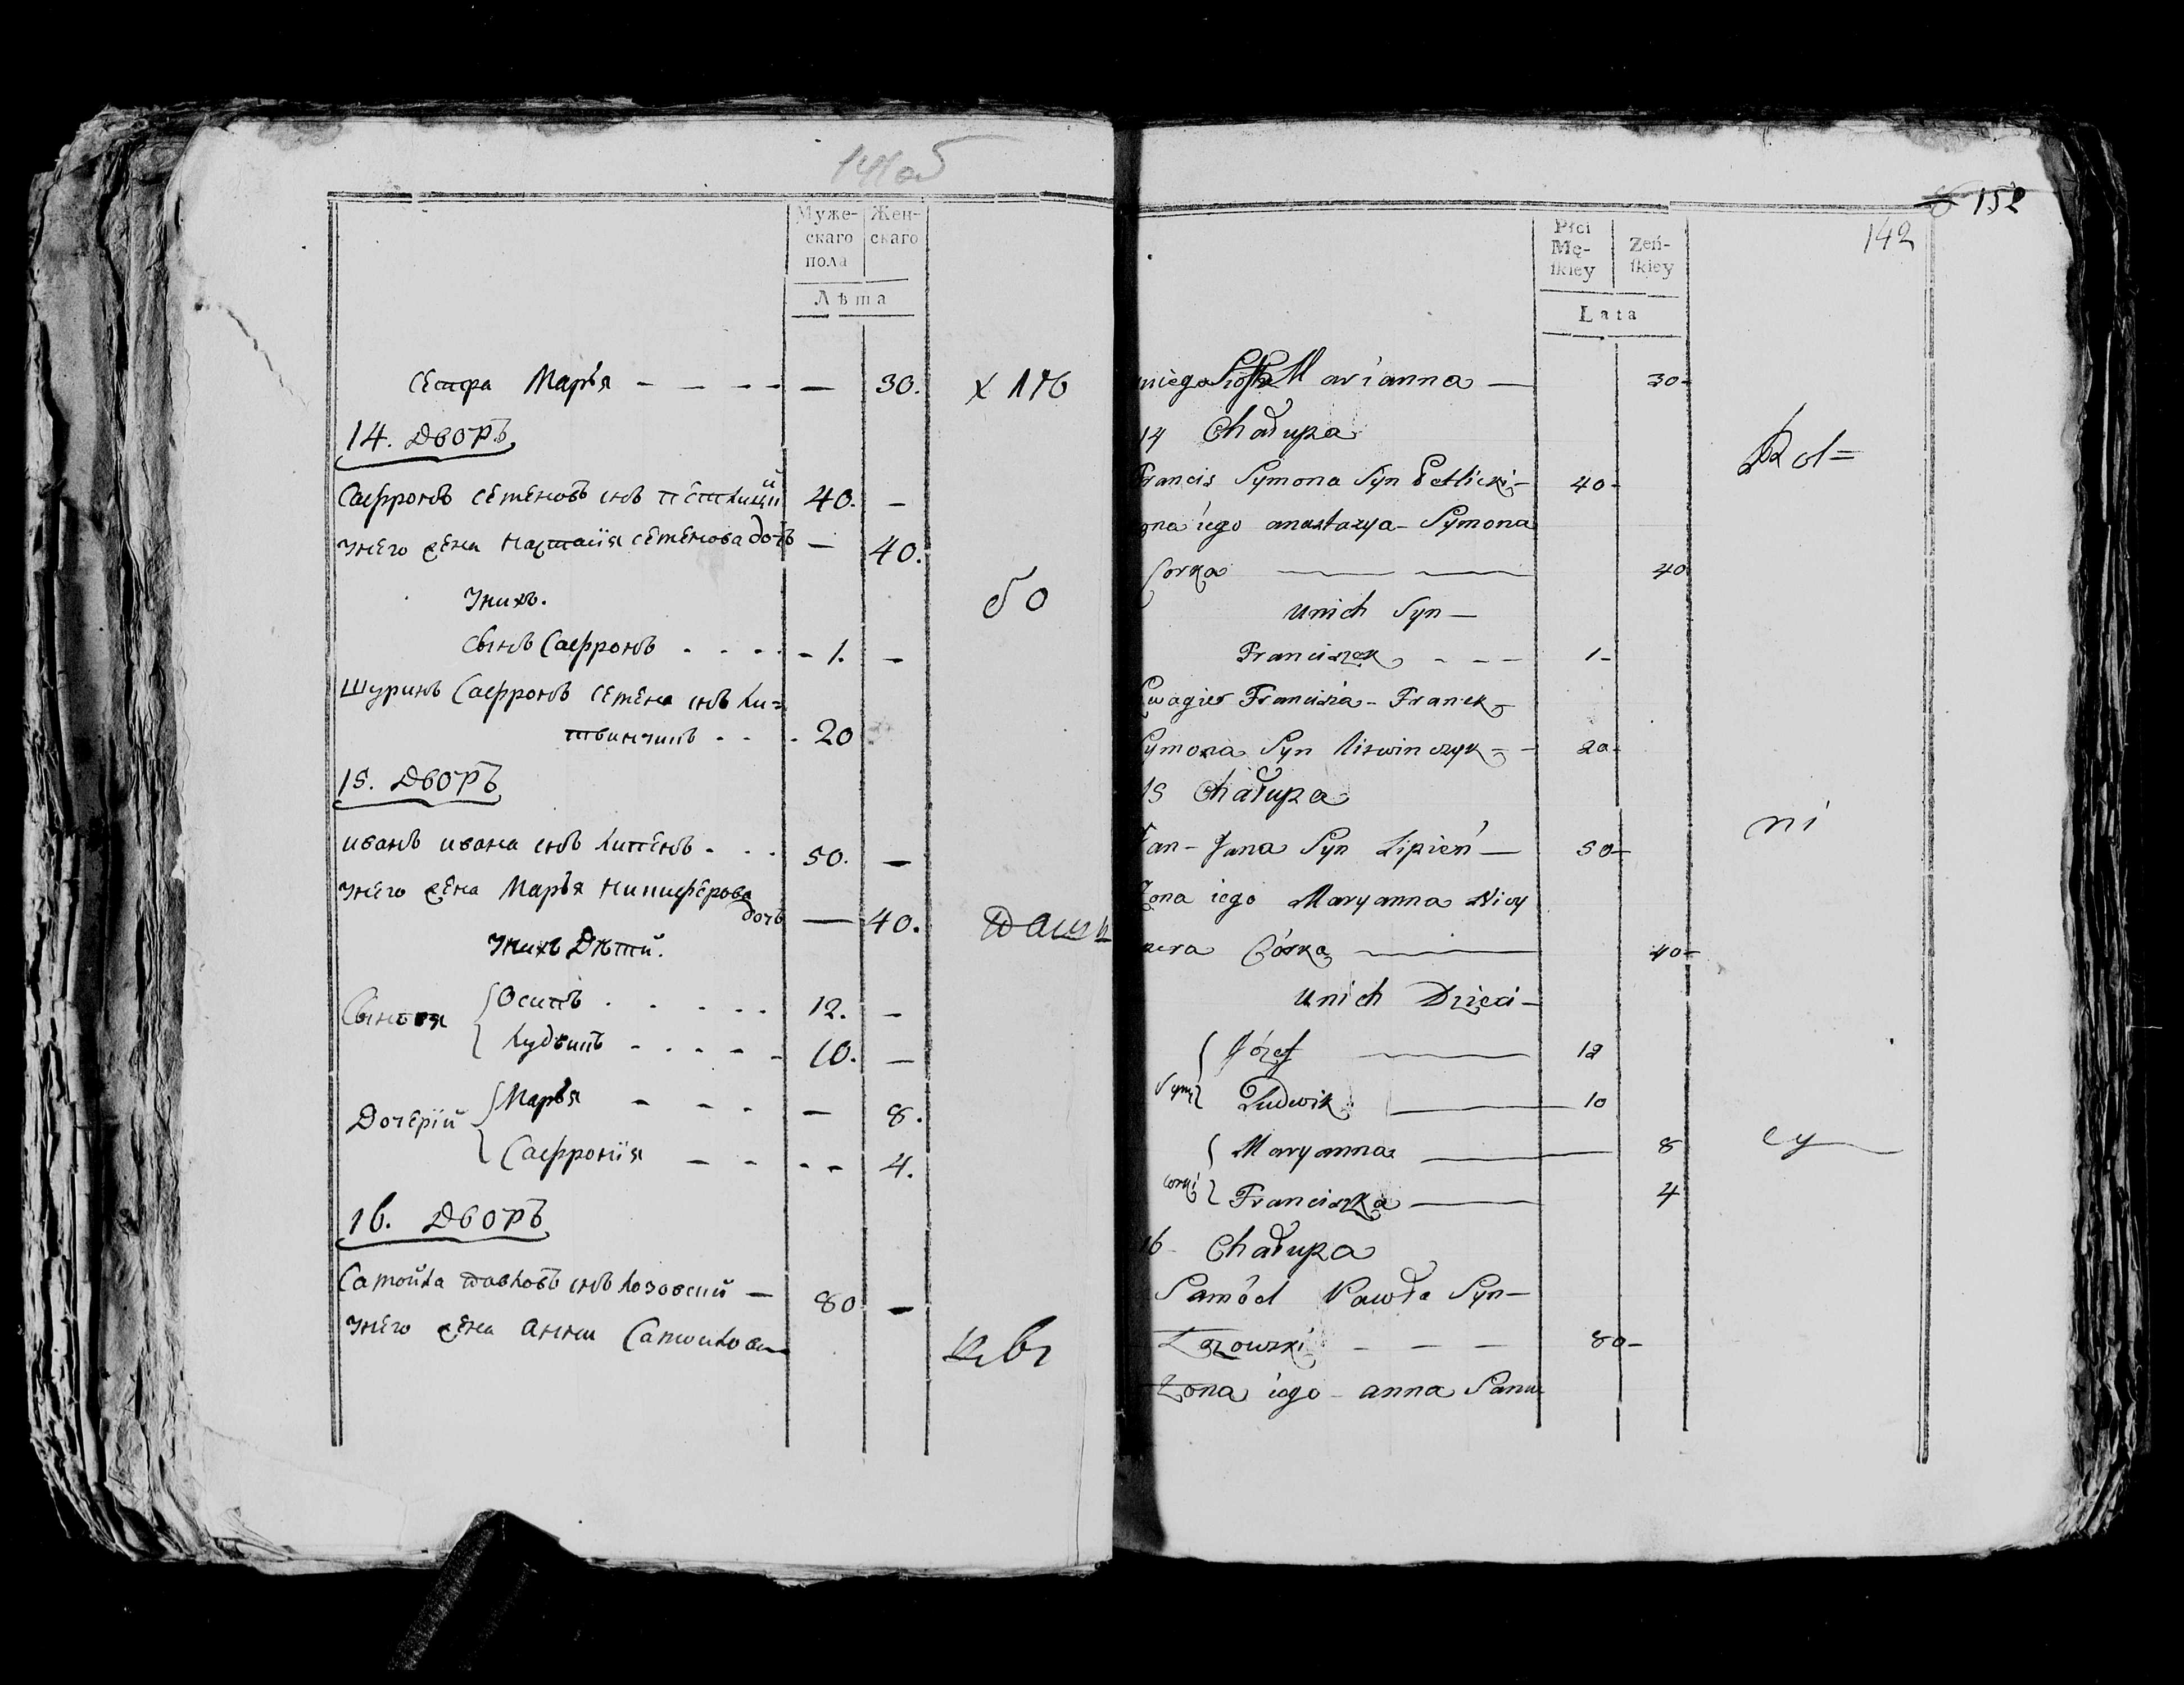 141 об
Муже-
скаго
пола
Жен-
скаго
Лѣта
сестра Марья - - - - — 30.
х
14. Дворъ
Сафронъ Семеновъ снъ петлицкій 40. —
унего жена Настасiя семенова дочь — 40.
Унихъ.
сынъ Сафронъ - - - - 1. —
Шуринъ Сафронъ семена снъ ли=
твинчикъ - - - 20
15. Дворъ
иванъ ивана снъ липенъ - - - 50. —
унего жена Марья никиферова
дочь — 40.
Унихъ Дѣти.
Сыновя { Осипъ - - - - - 12. —
Людвикъ - - - - - 10. —
Дочерiй { Марья - - - — 8.
Сафронiя - - - - 4.
16. Дворъ
Самойла павловъ снъ лозовский — 80 —
унего жена анна Самойлова
152
142
Płci
Mę-
ſkiey
Zeń-
ſkiey
Lata
uniego Siostra Marianna — 30-
14 Chałupa
Rol=
Francis Symona Syn Petlicki - 40-
Zona iego anastazya - Symona
Corka — — 40
unich Syn —
Franciszek - - - 1-
Swagier Franciszka - Franek
Symona Syn litwinczyk - - 20-
15 Chałupa
ni
Jan - Jana Syn Lipień — 50-
Zona iego Maryanna Nicy
Córka — 40-
unich Dzieci -
Syny { Józef — 12
Ludwik — 10
cy
corki { Maryanna — 8
Franciszka — 4
16 - Chałupa
Samóel Pawła Syn -
Łozowski - - - 80-
Zona iego - anna Samu